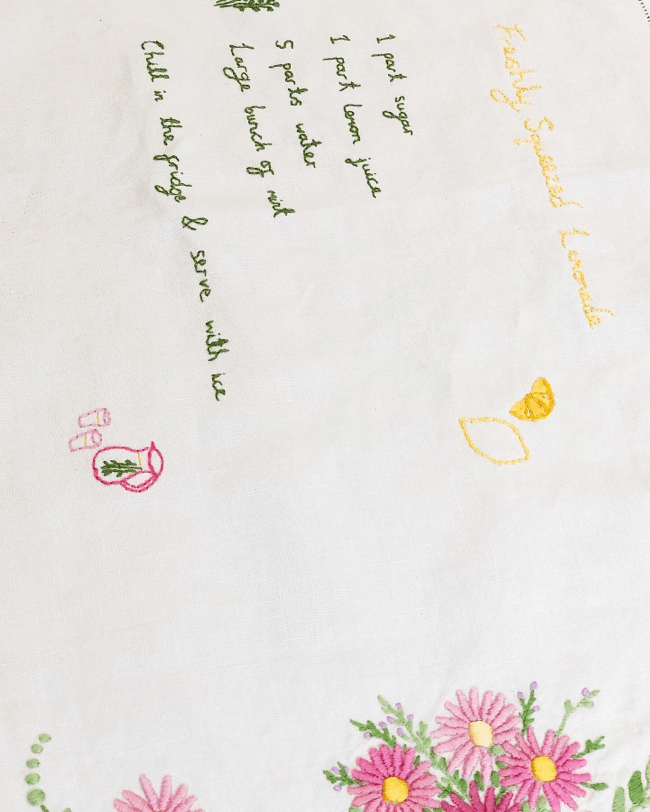 Freshly Squeezed Lemonade
1 part sugar
1 part lemon juice
5 parts water
Large bunch of mint
Chill in the fridge & serve with ice